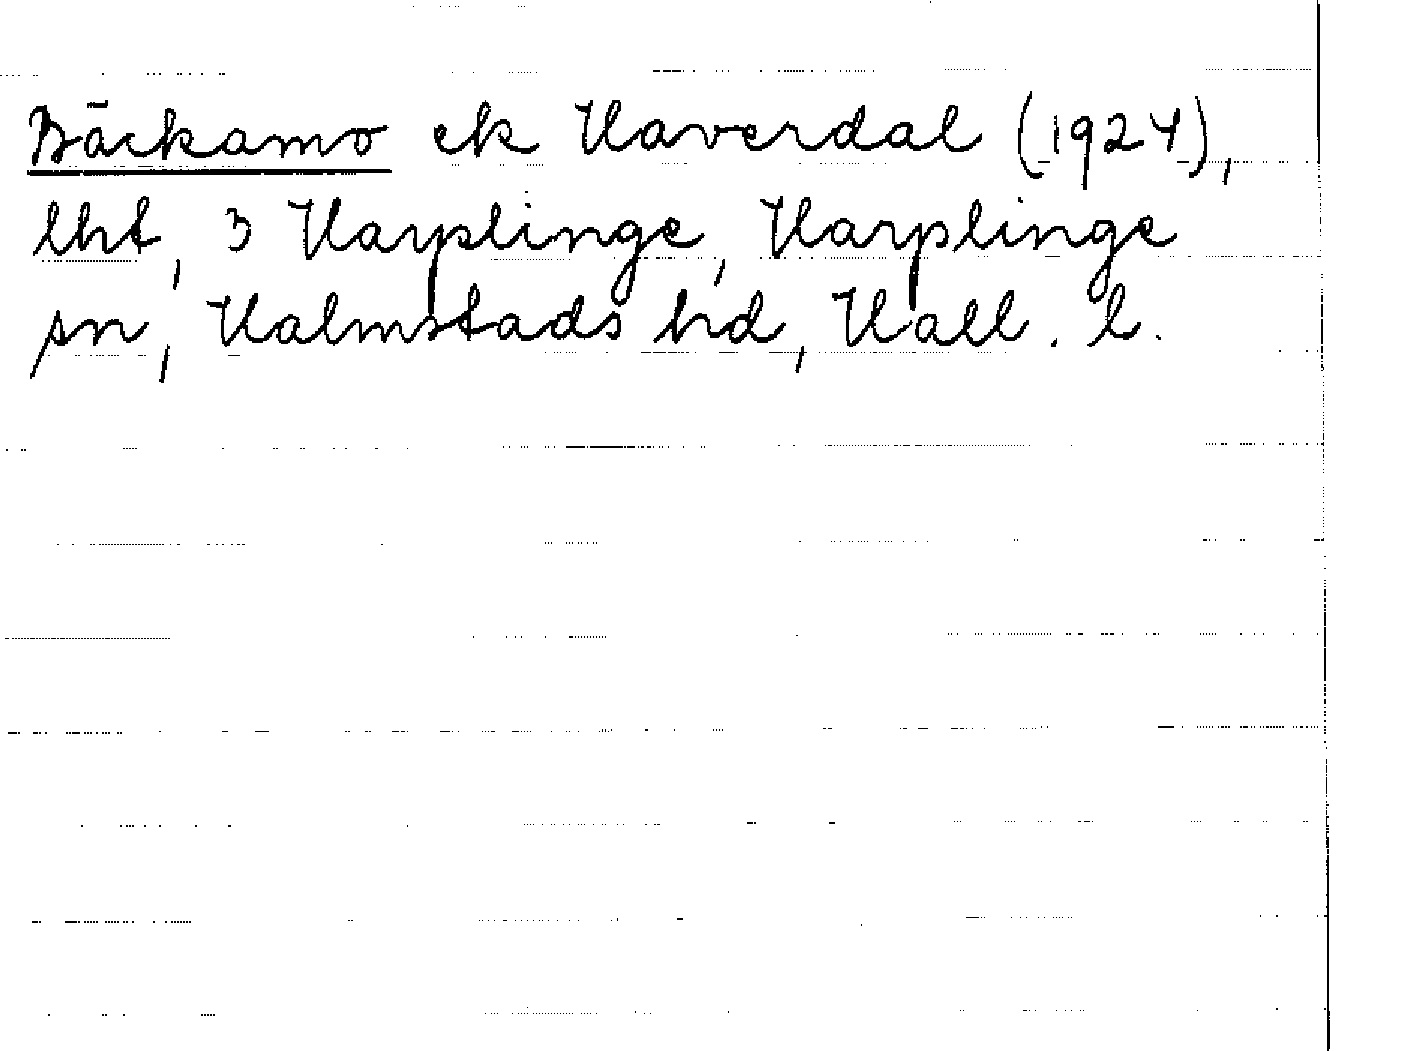 Bäckamo ek Haverdal (1924),
lht, 3 Harplinge, Harplinge
sn, Halmstads hd, Hall. l.